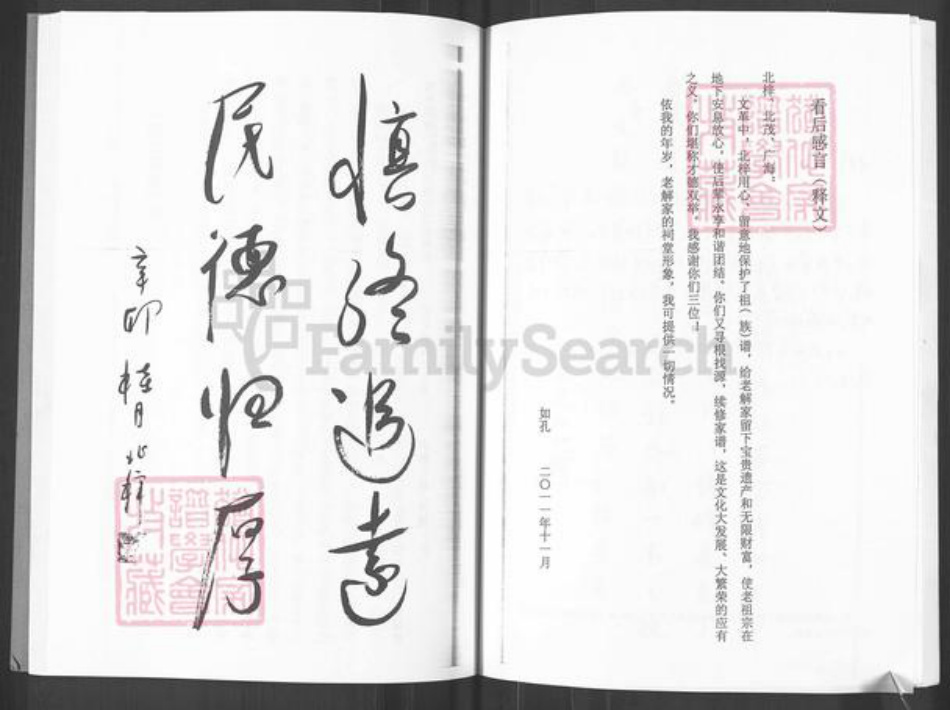 看后感言（释文）
北梓、北茂、广海：
文革中，北梓用心、留意地保护了祖（族）谱，给老解家留下宝贵遗产和无限财富，使老祖宗在
地下安息放心，使后辈永享和谐团结。你们又寻根找源，续修家谱，这是文化大发展、大繁荣的应有
之义。你们堪称才德双举。我感谢你们三位！
依我的年岁，老解家的祠堂形象，我可提供一切情况。
如孔 二〇一一年十一月
慎终追远
民德归厚
辛卯 桂月 北梓
FamilySearch